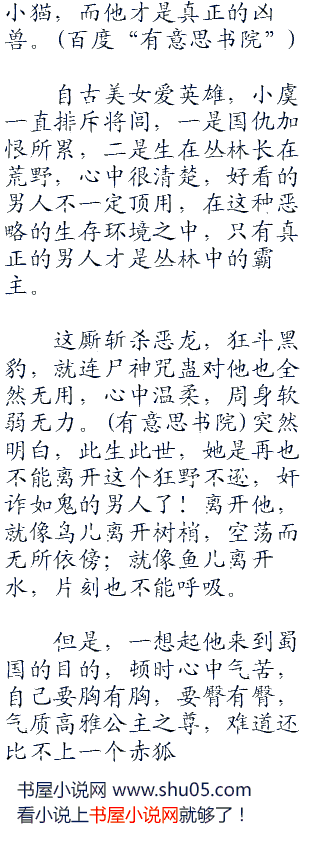 小猫，而他才是真正的凶
兽。(百度“有意思书院”)
自古美女爱英雄，小虞
一直排斥将闾，一是国仇加
恨所累，二是生在丛林长在
荒野，心中很清楚，好看的
男人不一定顶用，在这种恶
略的生存环境之中，只有真
正的男人才是丛林中的霸
主。
这厮斩杀恶龙，狂斗黑
豹，就连尸神咒蛊对他也全
然无用，心中温柔，周身软
弱无力。(有意思书院)突然
明白，此生此世，她是再也
不能离开这个狂野不逊，奸
诈如鬼的男人了！离开他，
就像鸟儿离开树梢，空荡而
无所依傍；就像鱼儿离开
水，片刻也不能呼吸。
但是，一想起他来到蜀
国的目的，顿时心中气苦，
自己要胸有胸，要臀有臀，
气质高雅公主之尊，难道还
比不上一个赤狐
书屋小说网 www.shu05.com
看小说上书屋小说网就够了！